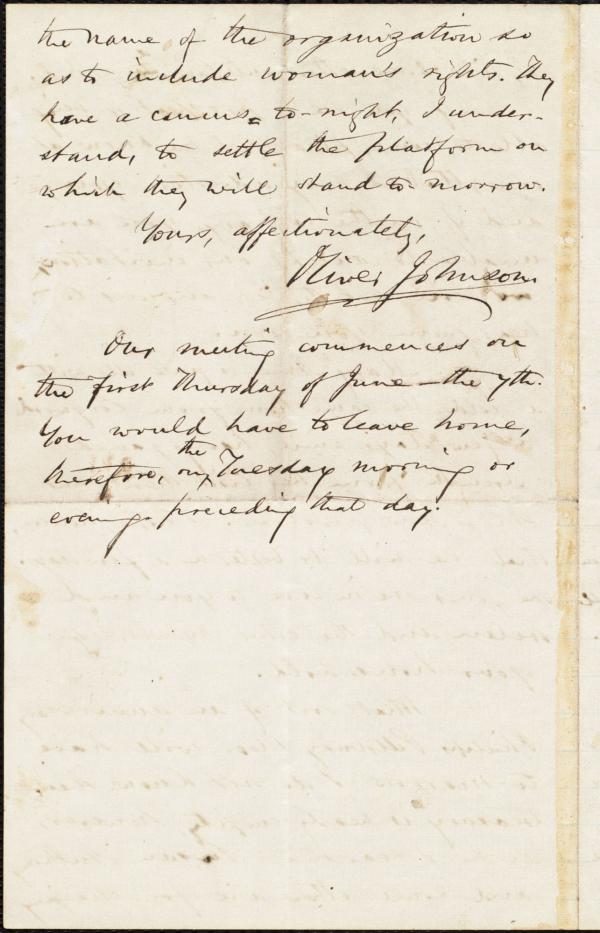 the name of the organization so
as to include woman's rights. They
have a caucus to-night, I under-
stand, to settle the platform on
which they will stand to-morrow.
Yours, affectionately,
Oliver Johnson.
Our meeting commences on
the first Thursday of June—the 7th.
You would have to leave home,
the
therefore, on Tuesday morning or
evening preceding that day.